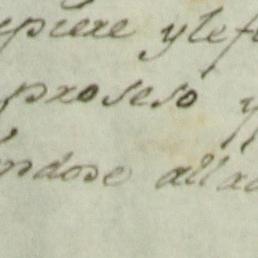 piere ylef
proseso y
ndose alla